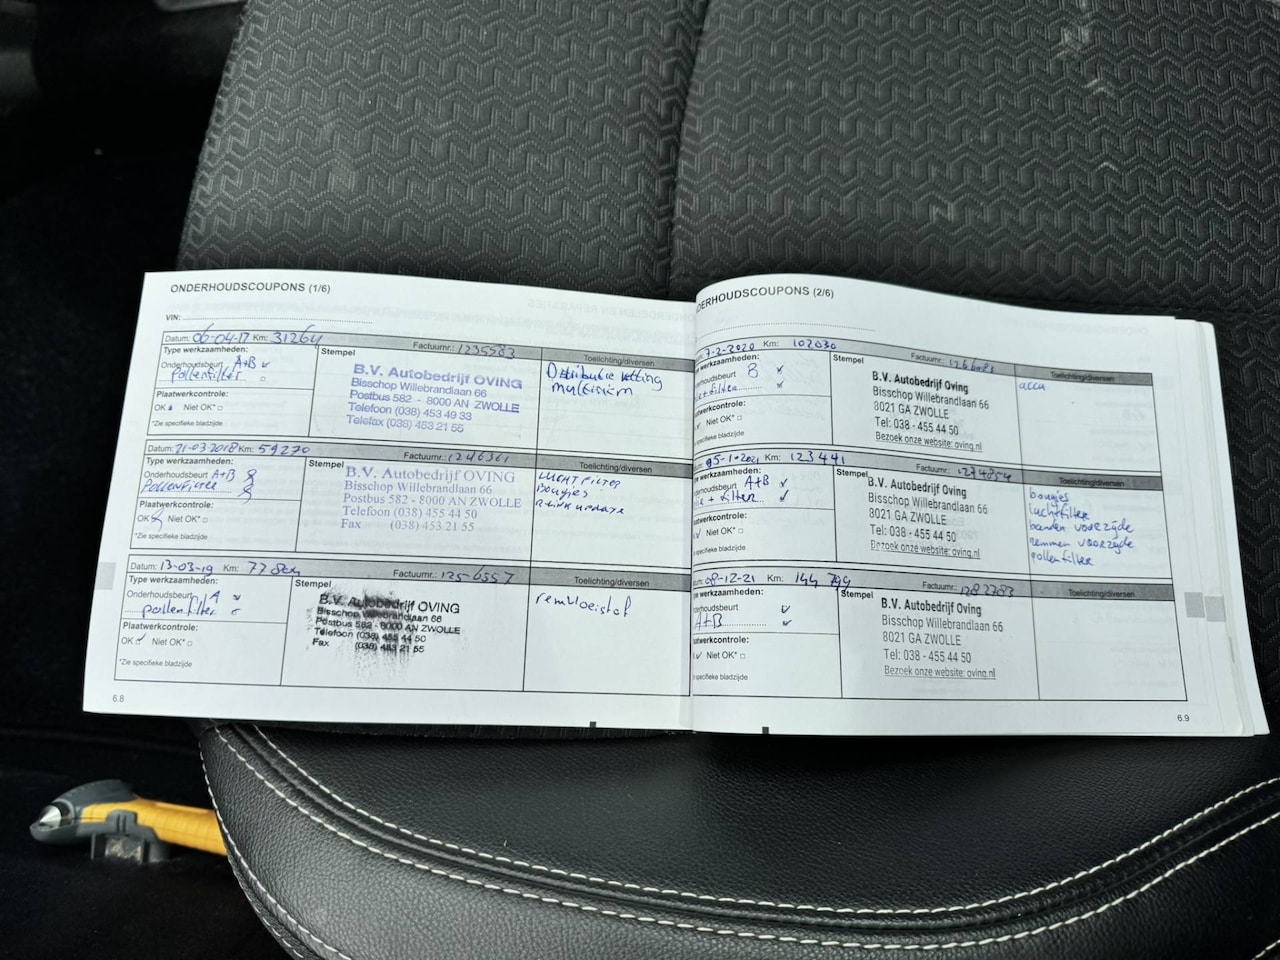 ONDERHOUDSCOUPONS (1/6)
VIN:
Datum: 06-04-17 Km: 31264 Factuurnr.: 1235583
Type werkzaamheden:
Onderhoudsbeurt A+B
pollenfilter
Plaatwerkcontrole:
OK Niet OK*
*Zie specifieke bladzijde
Stempel
B.V. Autobedrijf OVING
Bisschop Willebrandlaan 66
Postbus 582 - 8000 AN ZWOLLE
Telefoon (038) 453 49 33
Telefax (038) 453 21 55
Toelichting/diversen
multiriem
Datum: 21-03-2018 Km: 59270 Factuurnr.: 1246361
Type werkzaamheden:
Onderhoudsbeurt A+B
Pollenfilter
Plaatwerkcontrole:
OK Niet OK*
*Zie specifieke bladzijde
Stempel
B.V. Autobedrijf OVING
Bisschop Willebrandlaan 66
Postbus 582 - 8000 AN ZWOLLE
Telefoon (038) 455 44 50
Fax (038) 453 21 55
Toelichting/diversen
LUCHTFILTER
Bougies
Datum: 13-03-19 Factuurnr.: 1256557
Type werkzaamheden:
Onderhoudsbeurt A
pollenfilter
Plaatwerkcontrole:
OK Niet OK*
*Zie specifieke bladzijde
Stempel
B.V. Autobedrijf OVING
Bisschop Willebrandlaan 66
Postbus 582 - 8000 AN ZWOLLE
Telefoon (038) 455 44 50
Fax (038) 453 21 55
Toelichting/diversen
remvloeistof
6.8
ONDERHOUDSCOUPONS (2/6)
7-2-2020 Km: 102030 Factuurnr.:
werkzaamheden:
B
filter
Plaatwerkcontrole:
Niet OK*
specifieke bladzijde
Stempel
B.V. Autobedrijf Oving
Bisschop Willebrandlaan 66
8021 GA ZWOLLE
Tel: 038 - 455 44 50
Bezoek onze website: oving.nl
Toelichting/diversen
accu
05-1-2021 Km: 123441 Factuurnr.: 1274854
werkzaamheden:
Onderhoudsbeurt A+B
+ filter
Plaatwerkcontrole:
Niet OK*
specifieke bladzijde
Stempel
B.V. Autobedrijf Oving
Bisschop Willebrandlaan 66
8021 GA ZWOLLE
Tel: 038 - 455 44 50
Bezoek onze website: oving.nl
Toelichting/diversen
bougies
luchtfilter
banden voorzijde
remmen voorzijde
pollenfilter
08-12-21 Km: 144 794 Factuurnr.: 1282783
Type werkzaamheden:
Onderhoudsbeurt
A+B
Plaatwerkcontrole:
Niet OK*
specifieke bladzijde
Stempel
B.V. Autobedrijf Oving
Bisschop Willebrandlaan 66
8021 GA ZWOLLE
Tel: 038 - 455 44 50
Bezoek onze website: oving.nl
Toelichting/diversen
6.9